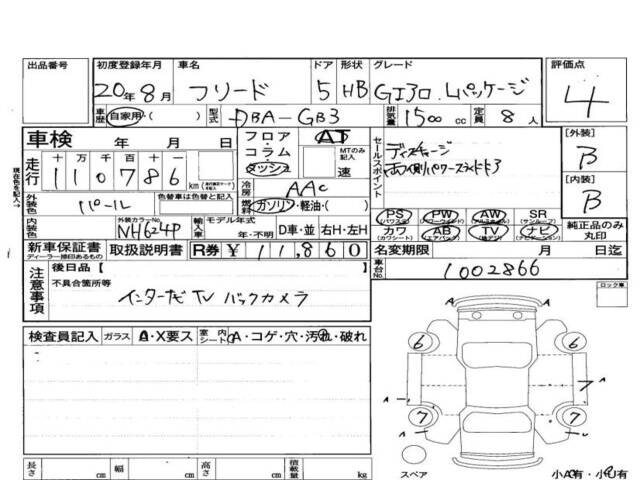 出品番号 初度登録年月 車名 ドア 形状 グレード 評価点
20年8月 フリード 5 HB GエアロLパッケージ 4
車歴 自家用・( ) 型式 DBA-GB3 排気量 1500cc 定員 8人
車検 年 月 日
フロア・コラム・ダッシュ AT MTのみ記入 速
走行 十 万 千 百 十 一
110786 km
セールスポイント ディスチャージ
両側パワースライドドア
[外装] B
[内装] B
冷房 AAC
外装色 パール 色替車は色替と記入
燃料 ガソリン・軽油・( )
PS (パワステ) PW (パワーウインド) AW (アルミホイール) SR (サンルーフ)
カワ (カワシート) AB (エアバック) TV (純テレビ) ナビ (ナビゲーション)
純正品のみ丸印
内装色 外装カラーNo. NH624P 輸入車 モデル年式 年・不明 D車・並 右H・左H
新車保証書 ディーラー捺印あるもの 取扱説明書 R券 ¥ 11,860
名変期限 月 日迄
車台No. 1002866
注意事項 後日品[ ]
不具合箇所等
インターナビ TV バックカメラ
ロック車
検査員記入 ガラス A・X要ス 室内シート A・コゲ・穴・汚れ・破れ
A A
6 6
7
A 7 7 A
長さ cm 幅 cm 高さ cm 積載量 kg
スペア
小A有・小U有
現在色を記入→